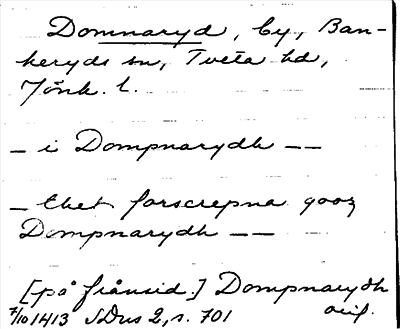 Domnaryd, by, Ban-
keryds sn, Tveta hd,
Jönk. l.
– i Dompnarydh – –
– thet forscrepna gooz
Dompnarydh – –
[på frånsid.] Dompnarydh
7/10 1413 SDns 2, s. 701 orig.